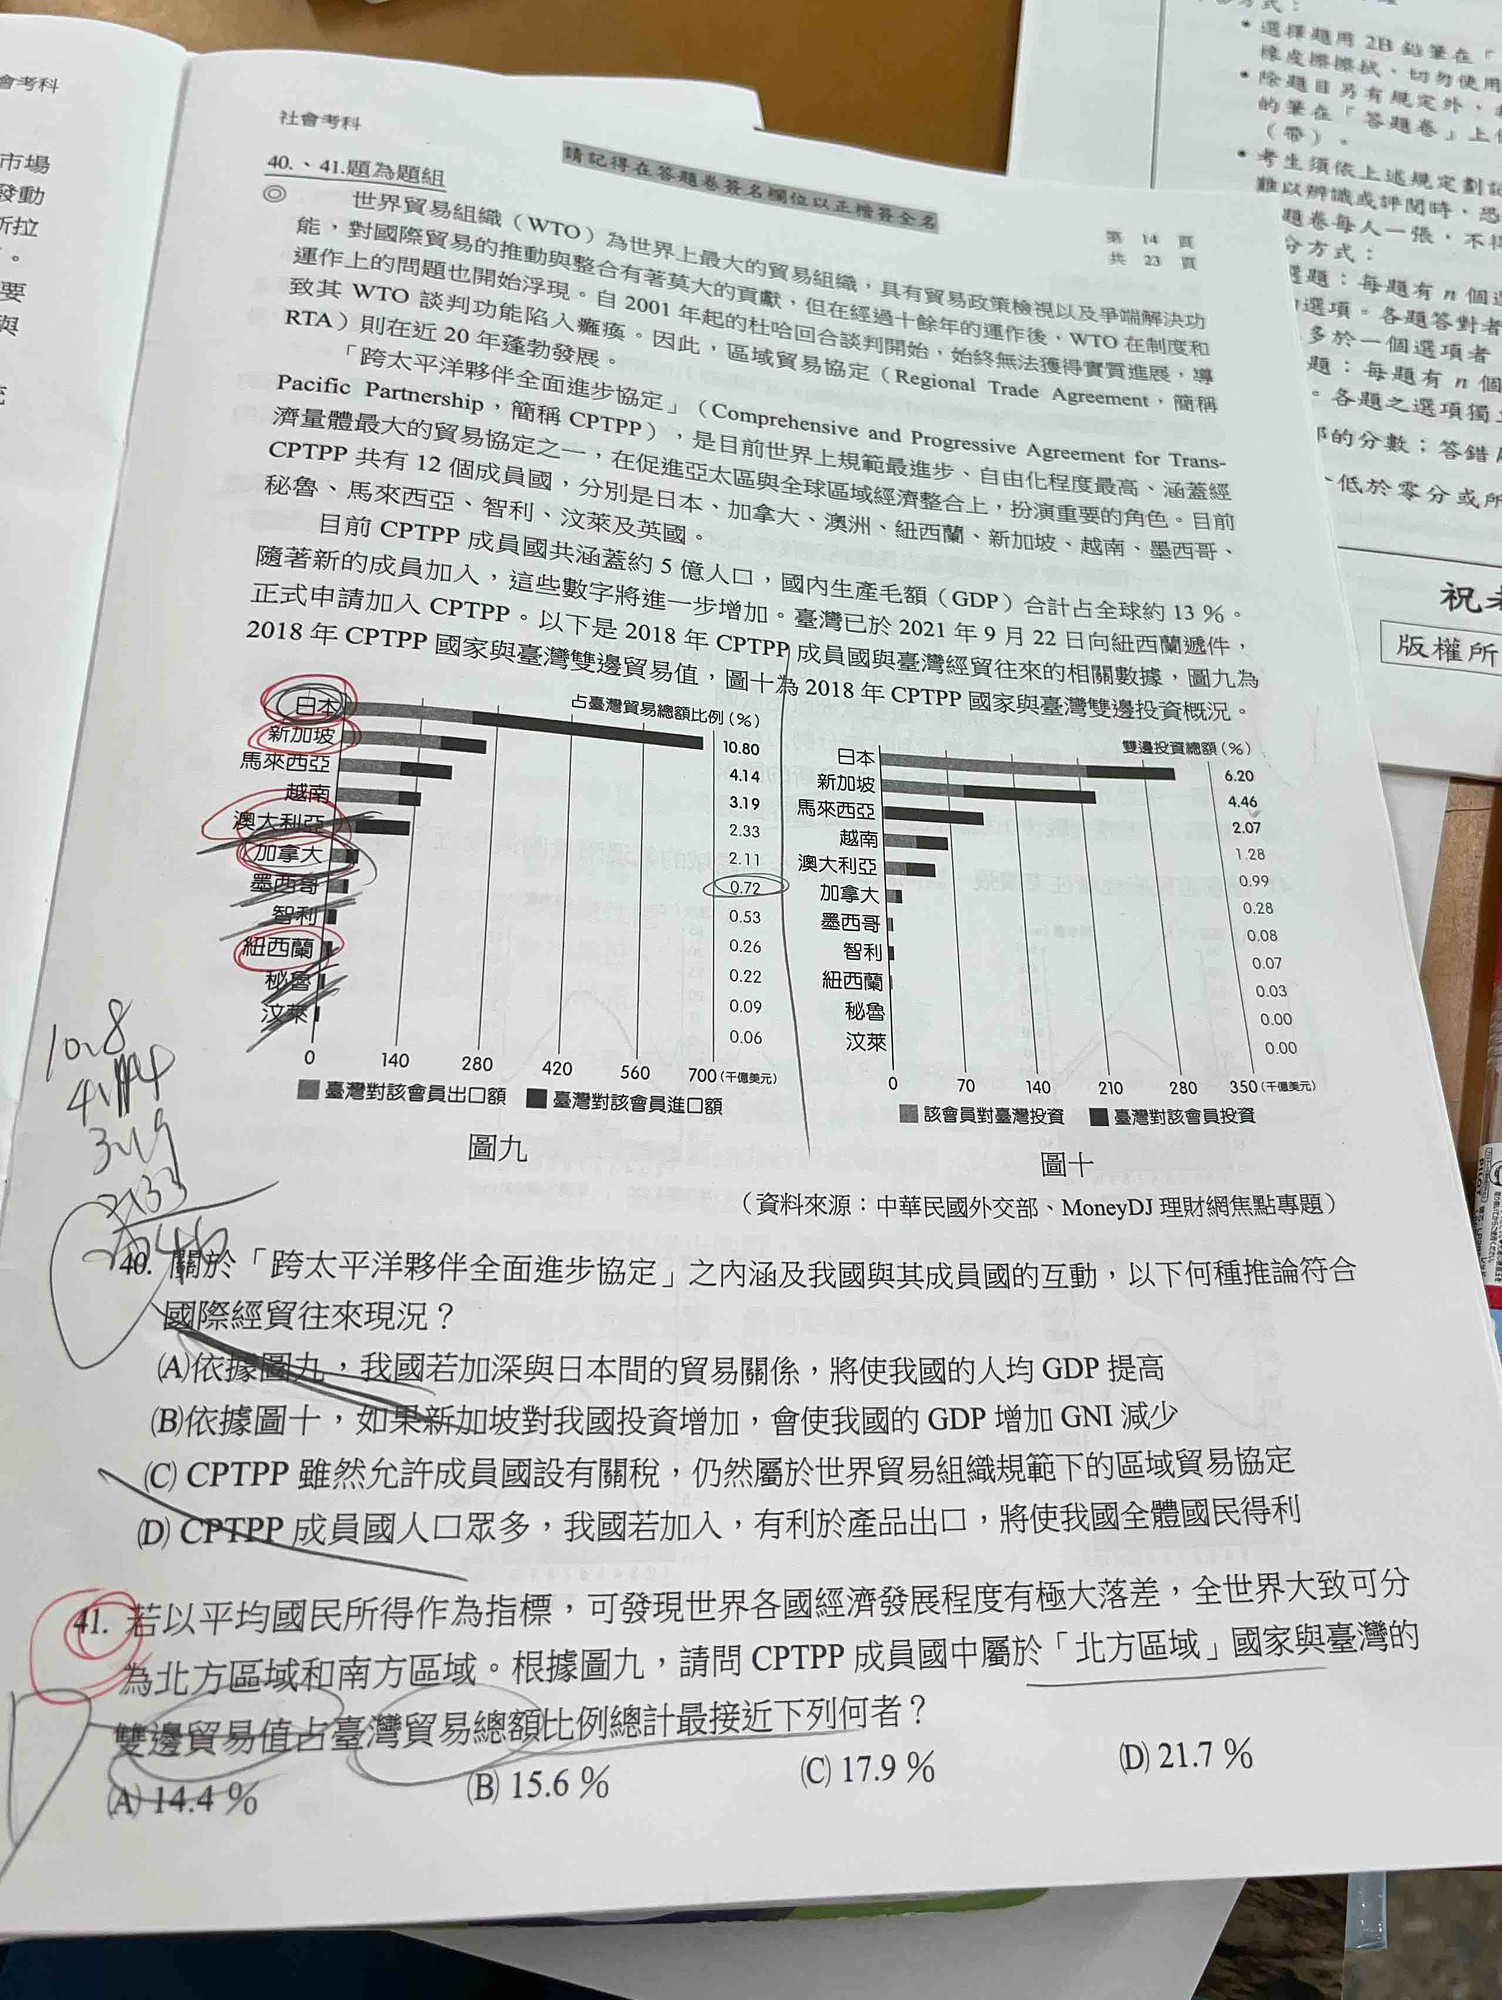 會考科
市場
發動
斯拉
。
要
與
社會考科
請記得在答題卷簽名欄位以正楷簽全名
第 14 頁
共 23 頁
40.、41.題為題組
◎ 世界貿易組織（WTO）為世界上最大的貿易組織，具有貿易政策檢視以及爭端解決功
能，對國際貿易的推動與整合有著莫大的貢獻，但在經過十餘年的運作後，WTO 在制度和
運作上的問題也開始浮現。自 2001 年起的杜哈回合談判開始，始終無法獲得實質進展，導
致其 WTO 談判功能陷入癱瘓。因此，區域貿易協定（Regional Trade Agreement，簡稱
RTA）則在近 20 年蓬勃發展。
「跨太平洋夥伴全面進步協定」（Comprehensive and Progressive Agreement for Trans-
Pacific Partnership，簡稱 CPTPP），是目前世界上規範最進步、自由化程度最高、涵蓋經
濟量體最大的貿易協定之一，在促進亞太區與全球區域經濟整合上，扮演重要的角色。目前
CPTPP 共有 12 個成員國，分別是日本、加拿大、澳洲、紐西蘭、新加坡、越南、墨西哥、
秘魯、馬來西亞、智利、汶萊及英國。
目前 CPTPP 成員國共涵蓋約 5 億人口，國內生產毛額（GDP）合計占全球約 13 %。
隨著新的成員加入，這些數字將進一步增加。臺灣已於 2021 年 9 月 22 日向紐西蘭遞件，
正式申請加入 CPTPP。以下是 2018 年 CPTPP 成員國與臺灣經貿往來的相關數據，圖九為
2018 年 CPTPP 國家與臺灣雙邊貿易值，圖十為 2018 年 CPTPP 國家與臺灣雙邊投資概況。
占臺灣貿易總額比例（%）
日本 10.80
新加坡 4.14
馬來西亞 3.19
越南 2.33
澳大利亞 2.11
加拿大 0.72
墨西哥 0.53
智利 0.26
紐西蘭 0.22
秘魯 0.09
汶萊 0.06
0 140 280 420 560 700（千億美元）
臺灣對該會員出口額 臺灣對該會員進口額
圖九
雙邊投資總額（%）
日本 6.20
新加坡 4.46
馬來西亞 2.07
越南 1.28
澳大利亞 0.99
加拿大 0.28
墨西哥 0.08
智利 0.07
紐西蘭 0.03
秘魯 0.00
汶萊 0.00
0 70 140 210 280 350（千億美元）
該會員對臺灣投資 臺灣對該會員投資
圖十
（資料來源：中華民國外交部、MoneyDJ 理財網焦點專題）
10.8
3.19
2.33
40. 關於「跨太平洋夥伴全面進步協定」之內涵及我國與其成員國的互動，以下何種推論符合
國際經貿往來現況？
(A)依據圖九，我國若加深與日本間的貿易關係，將使我國的人均 GDP 提高
(B)依據圖十，如果新加坡對我國投資增加，會使我國的 GDP 增加 GNI 減少
(C) CPTPP 雖然允許成員國設有關稅，仍然屬於世界貿易組織規範下的區域貿易協定
(D) CPTPP 成員國人口眾多，我國若加入，有利於產品出口，將使我國全體國民得利
41. 若以平均國民所得作為指標，可發現世界各國經濟發展程度有極大落差，全世界大致可分
為北方區域和南方區域。根據圖九，請問 CPTPP 成員國中屬於「北方區域」國家與臺灣的
雙邊貿易值占臺灣貿易總額比例總計最接近下列何者？
(A) 14.4 % (B) 15.6 % (C) 17.9 % (D) 21.7 %
方式：
• 選擇題用 2B 鉛筆在「
橡皮擦擦拭，切勿使用
• 除題目另有規定外，
的筆在「答題卷」上
（帶）。
• 考生須依上述規定劃記
難以辨識或評閱時，恐
題卷每人一張，不得
分方式：
選題：每題有 n 個選
選項。各題答對者
多於一個選項者
題：每題有 n 個
。各題之選項獨立
的分數；答錯
低於零分或所
祝考
版權所